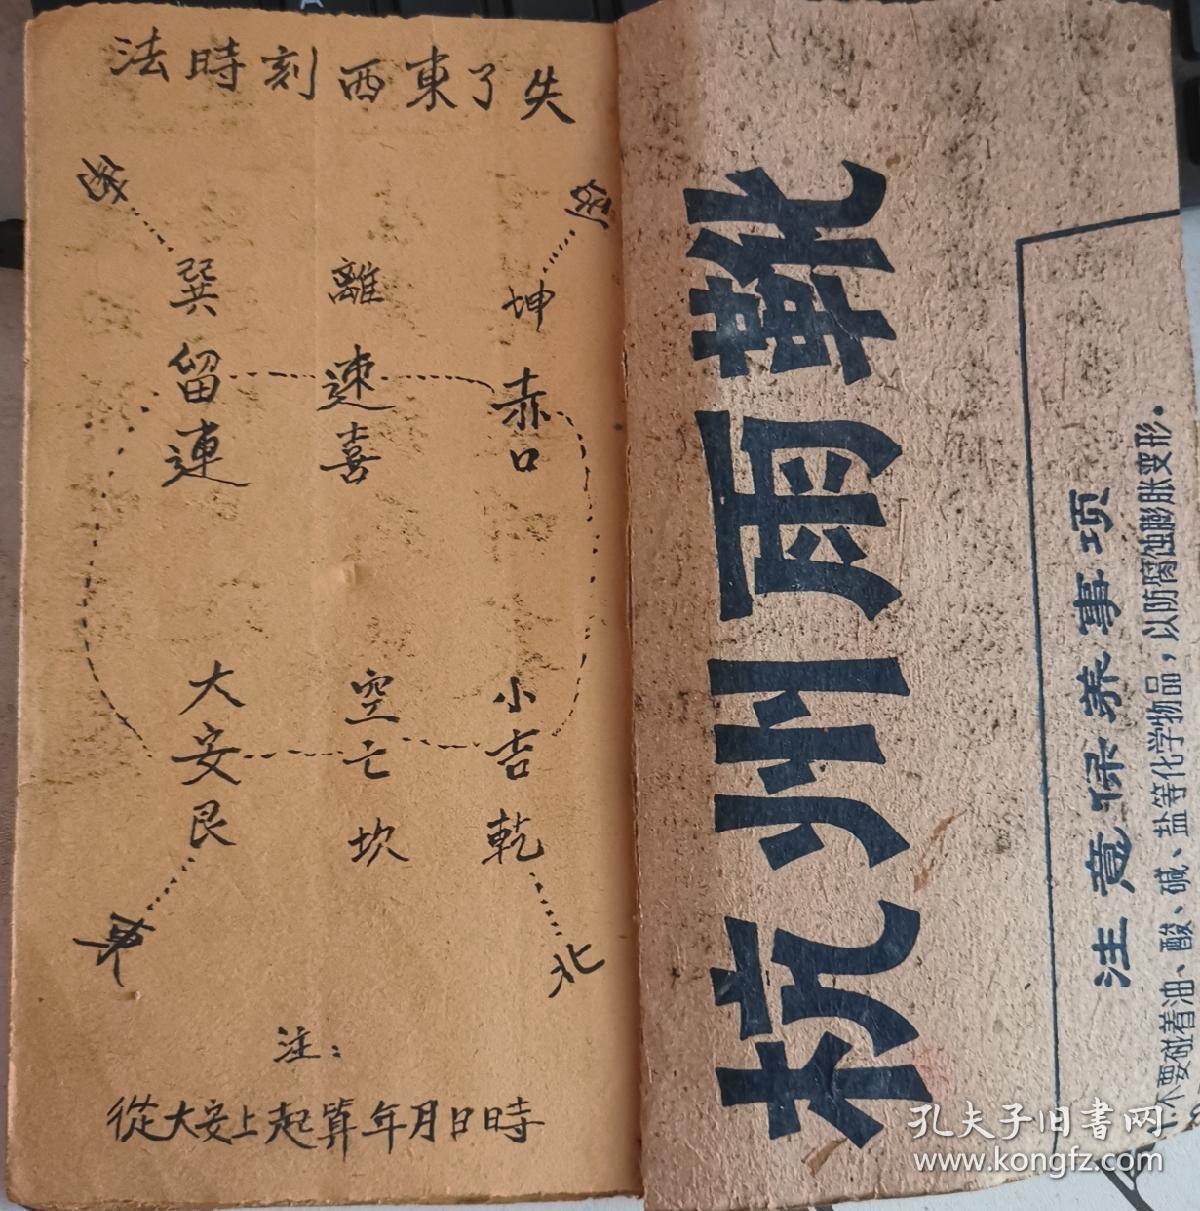 失了東西刻時法
坤赤口
離速喜
巽留連
小吉乾
空亡坎
大安艮
東
北
注：
從大安上起算年月日時
杭州雨靴
注意保养事项
不要碰着油、酸、碱、盐等化学物品，以防腐蚀膨胀变形。
孔夫子旧书网
www.kongfz.com